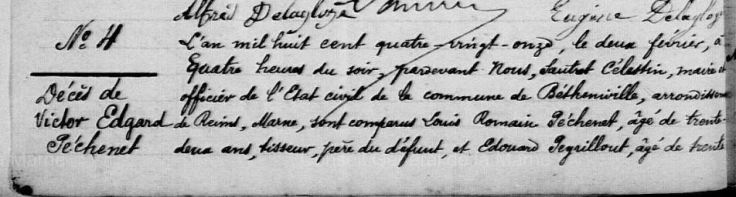 Alfred Delaglozé Eugène Delagloz
No 4
Décès de
Victor Edgard
Péchenet
L'an mil huit cent quatre-vingt-onze, le deux février, à
Quatre heures du soir, pardevant Nous, Sautret Célestin, maire et
officier de l'Etat civil de la commune de Bétheniville, arrondisseme
de Reims, Marne, sont comparus Louis Romain Péchenet, âgé de trente-
deux ans, tisseur, père du défunt, et Edouard Peyrillout, âgé de trente